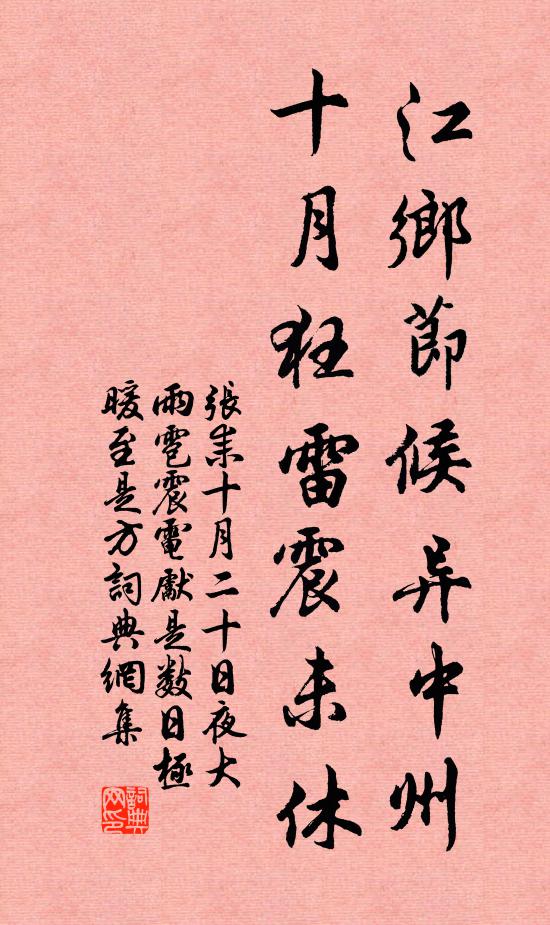 江鄉節候异中州
十月狂雷震未休
張耒十月二十日夜大
雨雹震電獻是数日極
暖至是方詞典網集
詞典网印